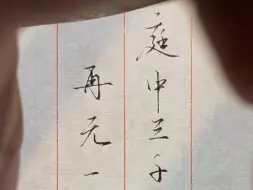 庭中三千
再无一